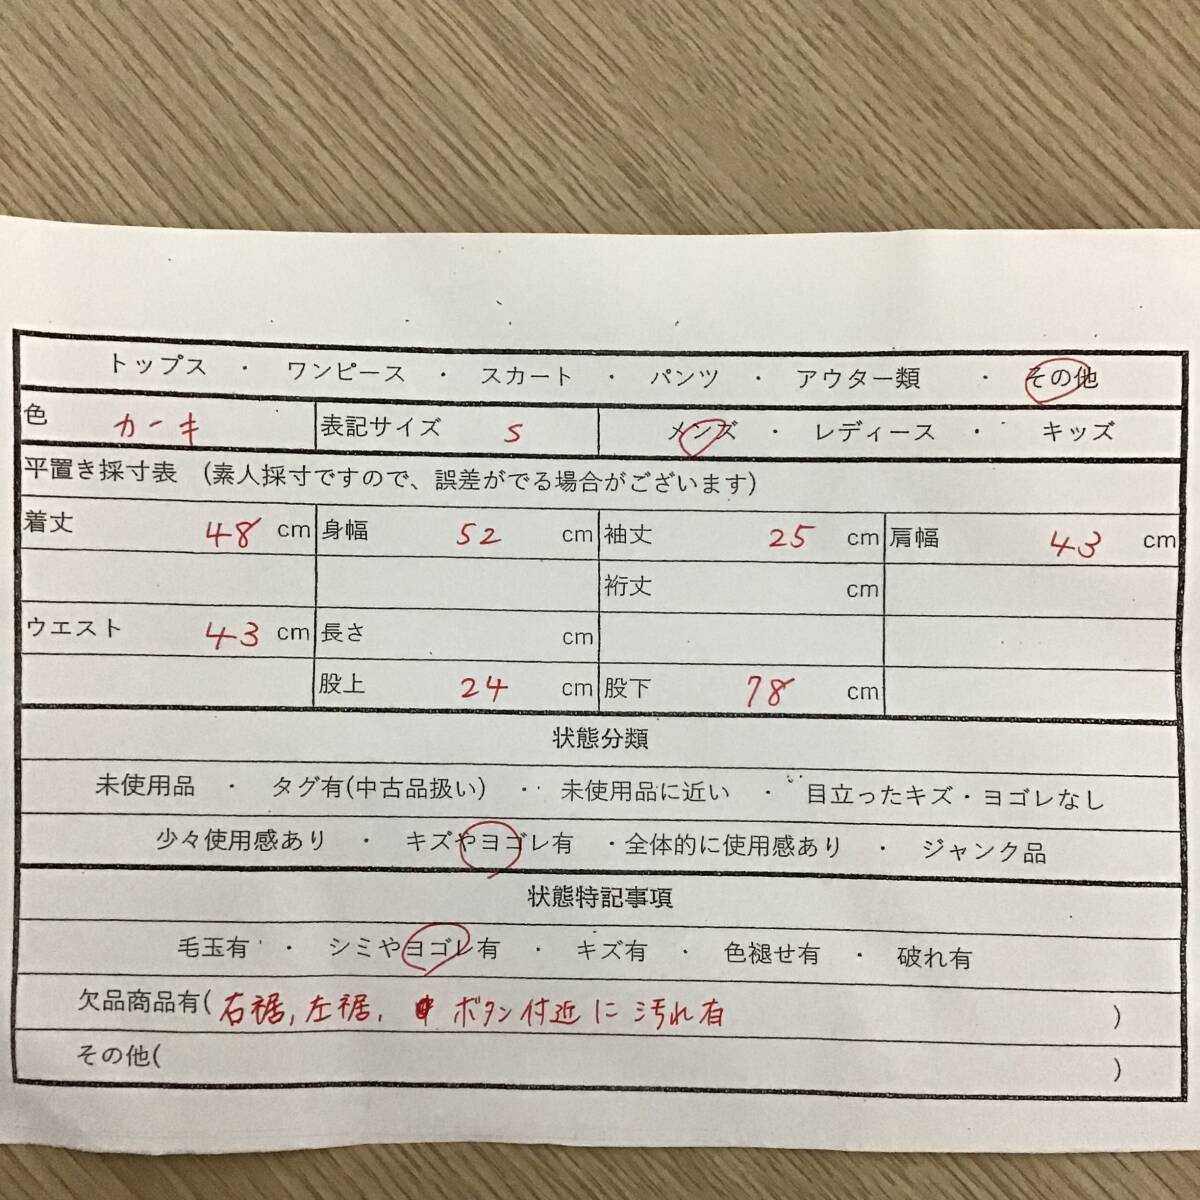 トップス ・ ワンピース ・ スカート ・ パンツ ・ アウター類 ・ その他
色 カーキ 表記サイズ S メンズ ・ レディース ・ キッズ
平置き採寸表 (素人採寸ですので、誤差がでる場合がございます)
着丈 48 cm 身幅 52 cm 袖丈 25 cm 肩幅 43 cm
裄丈 cm
ウエスト 43 cm 長さ cm
股上 24 cm 股下 78 cm
状態分類
未使用品 ・ タグ有(中古品扱い) ・ 未使用品に近い ・ 目立ったキズ・ヨゴレなし
少々使用感あり ・ キズやヨゴレ有 ・全体的に使用感あり ・ ジャンク品
状態特記事項
毛玉有 ・ シミやヨゴレ有 ・ キズ有 ・ 色褪せ有 ・ 破れ有
欠品商品有( 右裾, 左裾, ボタン付近に汚れ有 )
その他( )